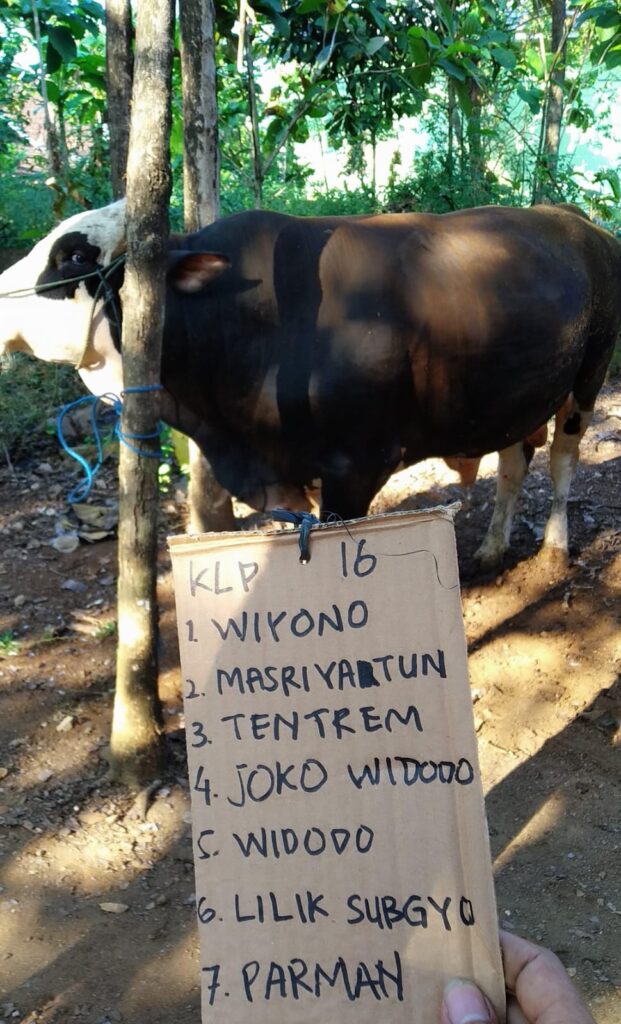 KLP 16
1. WIYONO
2. MASRIYATUN
3. TENTREM
4. JOKO WIDODO
5. WIDODO
6. LILIK SUBGYO
7. PARMAN